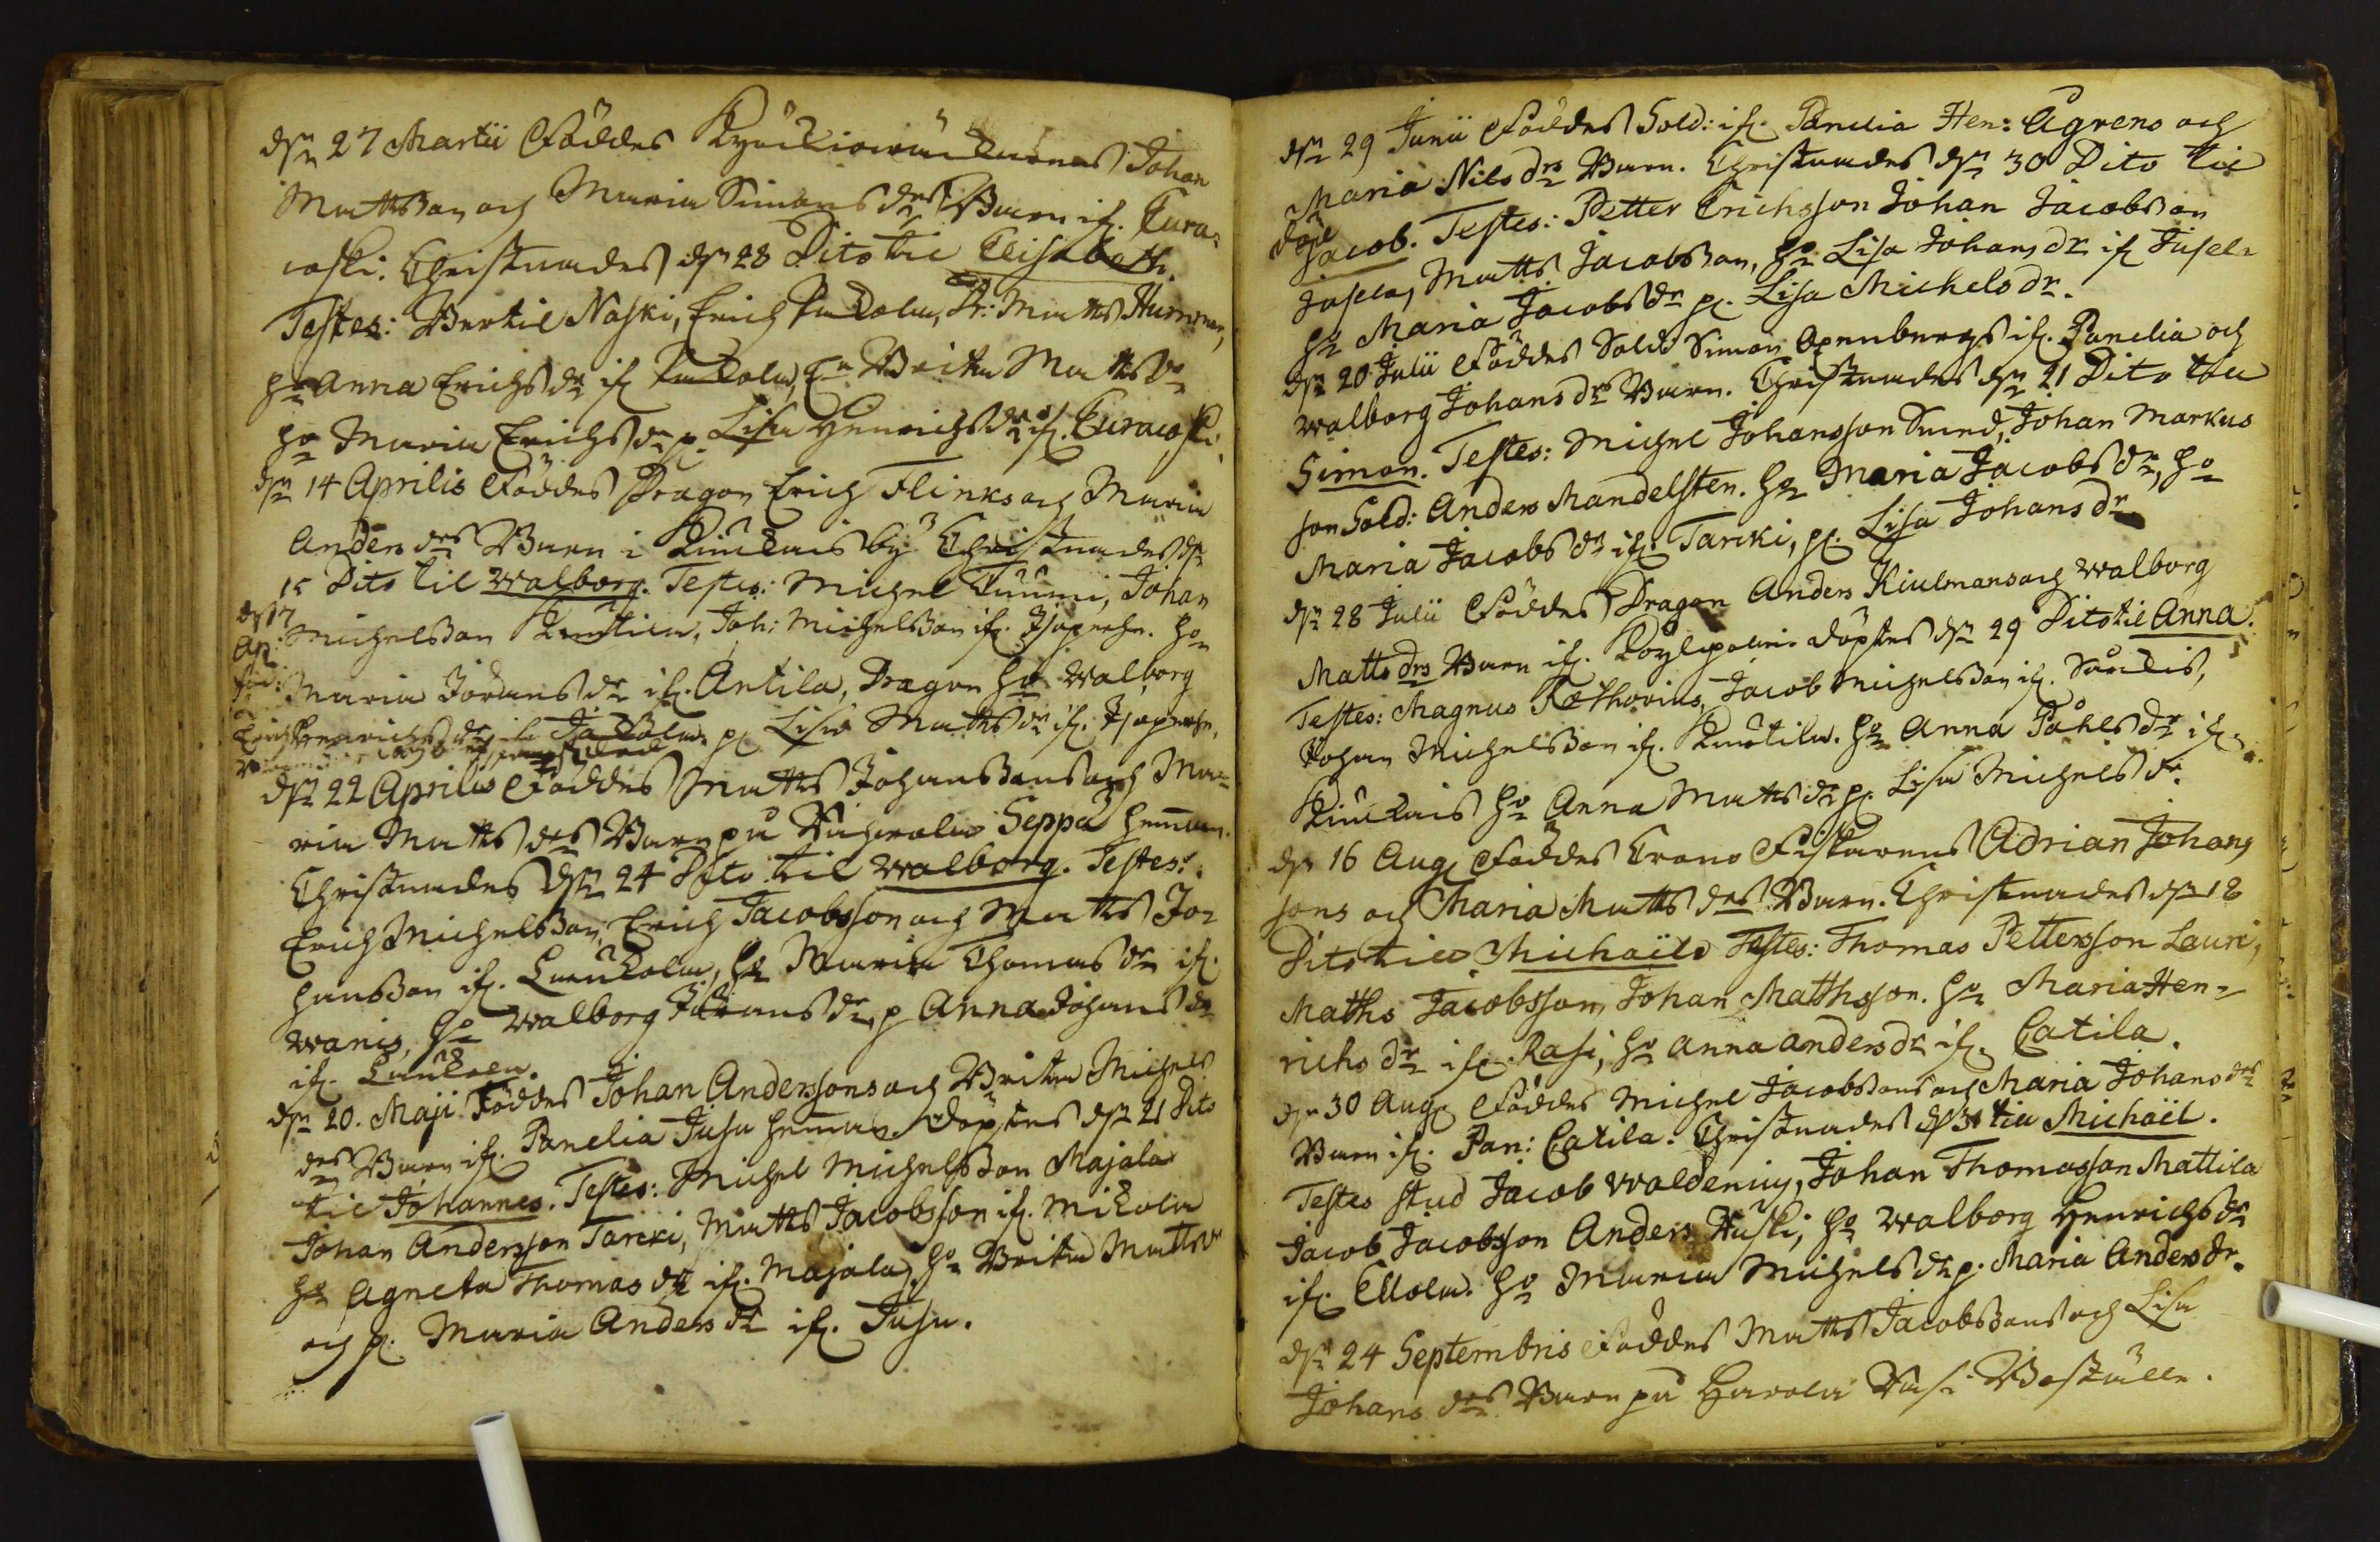 dn 27 Martii Föddes Johan
Mattsson och Maria Simons drs Barn if. Eura-
coski. Christnades dn 28 Dito til Elisabeth.
Testes: Bertil Naski, Erich Matts Hummer,
ho Anna Erichs dr if Brita Matts dr
ho Maria Erichs dr p. Lisa Henrichs dr if. Euracoski.
dn 14 Aprilis Föddes Dragon Erich Flinks och Maria
Anders drs Barn i Kiukais by Christnades dn
15 Dito til Walborg. Testes: Michel Tuumi, Johan
Michelsson Knutila, Joh: Michelsson if. ho
Maria Jörans dr if. Antila, Dragon ho Walborg
Henrichs dr p Lisa Matts dr if.
dn 22 Aprilis Föddes Matts Johanssons och Ma-
ria Matts drs Barn på Seppä hemman.
Christnades dn 24 Dito til Walborg. Testes:
Erich Michelsson, Erich Jacobsson och Matts Jo-
hansson if. ho Maria Thomas dr if.
ho Walborg Jörans dr, p Anna Johans dr
if.
dn 20. Maji Föddes Johan Anderssons och Brita Michels
drs Barn if. Panelia Jusu hemman. Döptes dn 21 Dito
til Johannes. Testes: Michel Michelsson Majala
Johan Andersson Tarcki, Matts Jacobsson if. Mikola
ho Agneta Thomas dr if. Majala, ho Brita Matts dr
och p. Maria Anders dr if. Jusu.
dn 29 Junii Föddes Sold: if. Panelia Hen: Ågrens och
Maria Nils drs Barn. Christnades dn 30 Dito til
Jacob. Testes: Petter Erichsson Johan Jacobsson
Jusela, Matts Jacobsson, ho Lisa Johans dr if Jusela
ho Maria Jacobs dr p. Lisa Michels dr.
dn 20 Julii Föddes Sold Simon Openbergs if. Panelia och
Walborg Johans drs Barn. Christnades dn 21 Dito til
Simon. Testes: Michel Johansson Smed, Johan Markus
son Sold: Anders Mandelsten. ho Maria Jacobs dr, ho
Maria Jacobs dr if. Tarcki, p. Lisa Johans dr.
dn 28 Julii Föddes Dragon Anders Kiulmans och Walborg
Matts drs Barn if. Döptes dn 29 Dito til Anna.
Testes: Magnus Rethorius, Jacob Michelsson if.
Johan Michelsson if. Knutila. ho Anna Påhls dr if.
Kiukais ho Anna Matts dr p. Lisa Michels dr.
dn 16 Aug Föddes Crono Fiskarens Adrian Johans
sons och Maria Matts drs Barn. Christnades dn 18
Dito til Michaël Testes: Thomas Pettersson Lauri,
Matths Jacobsson, Johan Matthsson. ho Maria Hen-
richs dr if. Rasi, ho Anna Anders dr if. Catila.
dn 30 Aug Föddes Michel Jacobssons och Maria Johans drs
Barn if. Pan: Catila. Christnades dn 31 til Michaël.
Testes Stud Jacob Waldenius, Johan Thomasson Mattila
Jacob Jacobsson Anders ho Walborg Henrichs dr
if. ho Maria Michels dr p. Maria Anders dr.
dn 24 Septembris Föddes Matts Jacobssons och Lisa
Johans drs Barn på Harola Boställe.